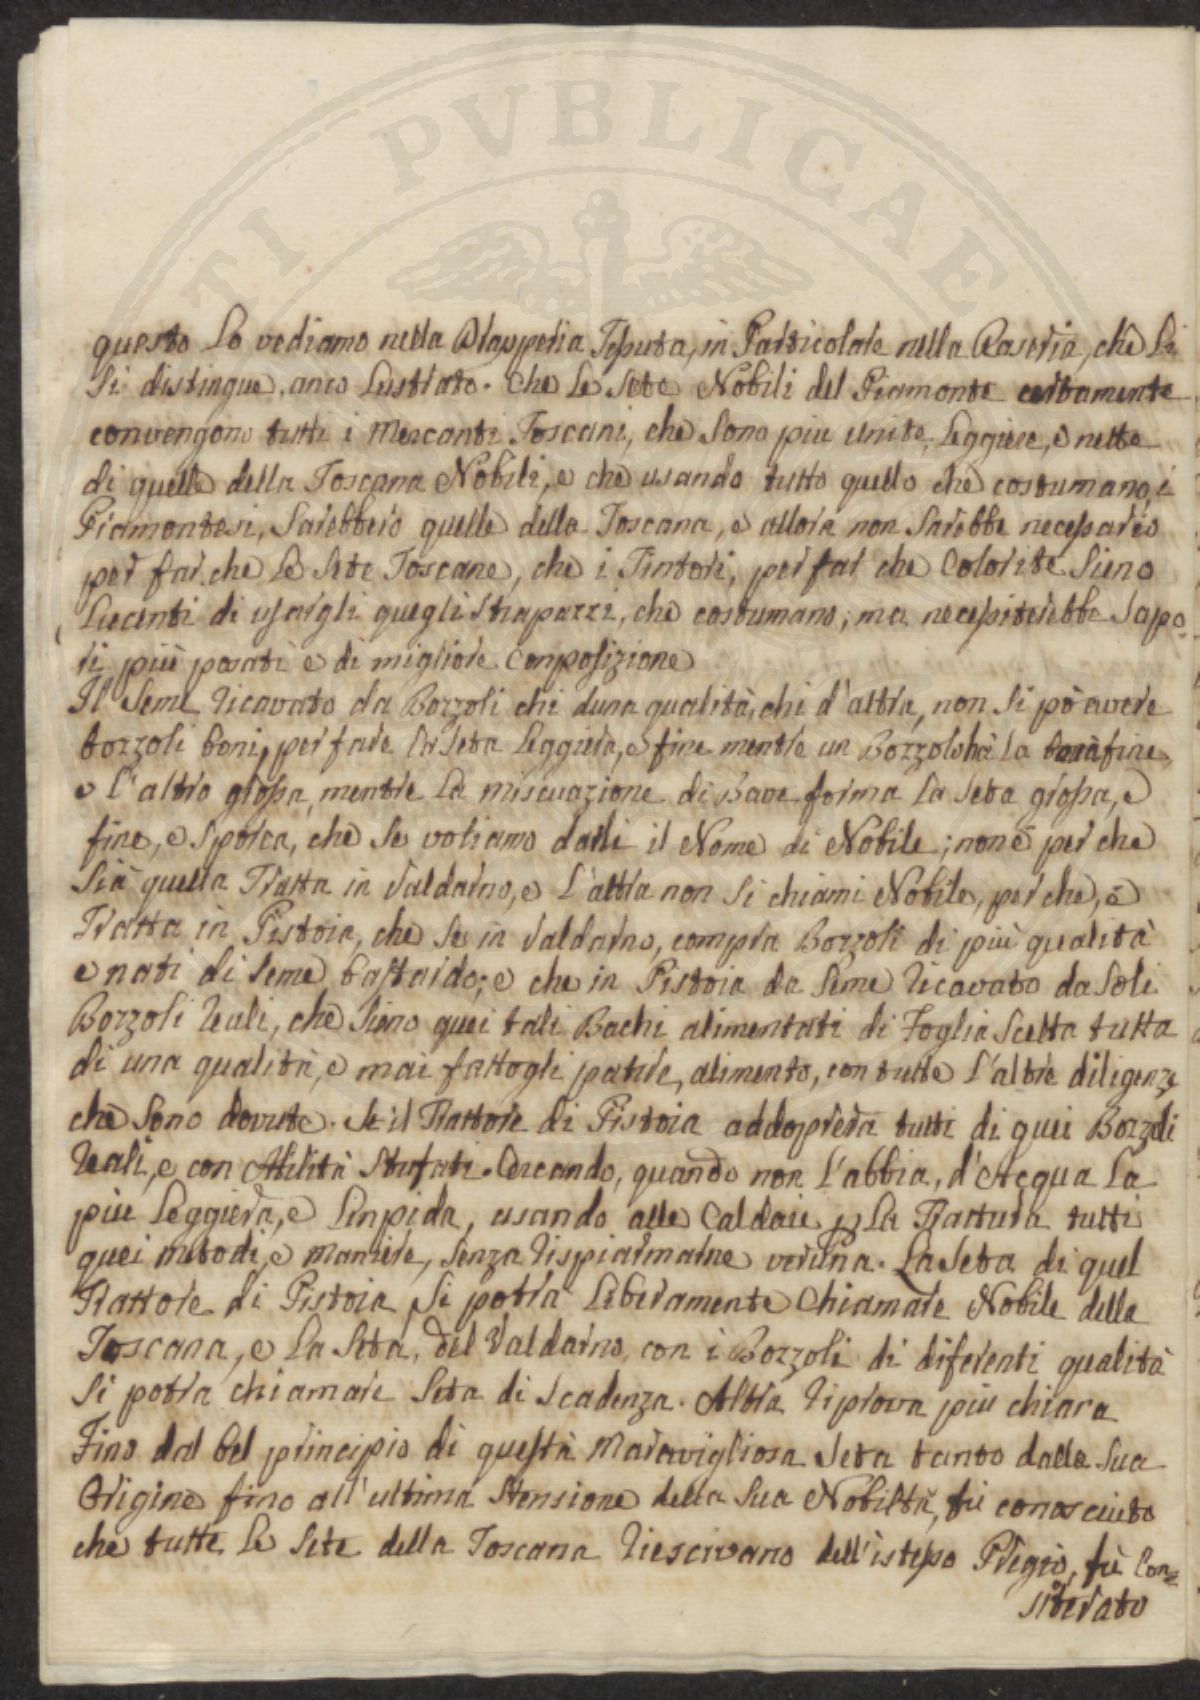 TI PVBLICAE
questo Lo vediamo nella Drapperia Tessuta, in Particolare nella Raseria, che Li
Si distingue, anco Lustrato. Che Le Sete Nobili del Piamonte certamente
convengono tutti i Mercanti Toscani, che Sono piu unite, Leggiere, e nette
di quelle della Toscana Nobili, e che usando tutto quello che costumano, i
Piamontesi, Sarebbero quelle della Toscana, e allora non Sarebbe necessario
per far che Le Sete Toscane, che i Tintori, per far che Colorite Sieno
Lucenti di usargli quegli Strapazzi, che costumano; ma necessiterebbe Sapo=
ri più posati e di migliore Composizione
Il Seme Ricavato da Bozzoli chi duna qualità, chi d'altra, non Si pò avere
bozzoli boni, per fare La Seta Leggiera, e fine mentre un Bozzolo hà la bava fine,
e l'altro grossa, mentre La miscuazione di Bave forma La Seta grossa, e
fine, e Sporca, che Se voliamo darli il Nome di Nobile; non è per che
Sia quella Tratta in Valdarno, e L'altra non Si chiami Nobile, per che, è
Tratta in Pistoia, che Se in Valdarno, compra Bozzoli di più qualità
e nati di Seme bastardo; e che in Pistoia da Seme Ricavato da Soli
Bozzoli Reali, che Sieno quei tali Bachi alimentati di Foglia Scelta tutta
di una qualità, e mai fattogli patire, alimento, con tutte L'altre diligenze
che Sono dovute. Se il Trattore di Pistoia addoprera tutti di quei Bozzoli
Reali, e con Abilità Stufati. Cercando, quando non L'abbia, d'Acqua La
più Leggiera, e Linpida, usando alle Caldaie p La Trattura tutti
quei metodi, e maniere, Senza Rispiarmarne veruna. La Seta di quel
Trattore di Pistoia Si potra Liberamente Chiamare Nobile della
Toscana, e La Seta, del Valdarno, con i Bozzoli di diferenti qualità
Si potra chiamare Seta di Scadenza. Altra Riprova più chiara
Fino dal bel principio di questa Maravigliosa Seta tanto dalla Sua
Origine fino all'ultima Stensione della Sua Nobiltà, fù conosciuto
che tutte Le Sete della Toscana Riescivano dell'istesso Pregio, fù Con=
siderato